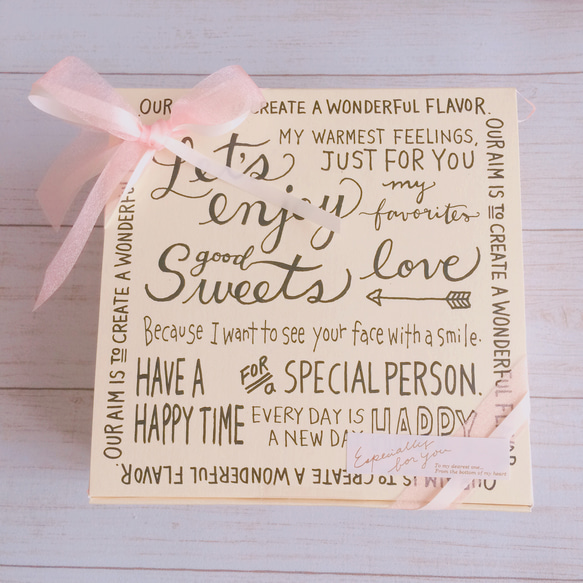 OUR CREATE A WONDERFUL FLAVOR.
MY WARMEST FEELINGS,
JUST FOR YOU
Let's
enjoy
my
favorites
good
Sweets
love
Because I want to see your face with a smile.
HAVE A
FOR a
SPECIAL PERSON.
HAPPY TIME
EVERY DAY IS
A NEW DAY
HAPPY
OUR AIM IS TO CREATE A WONDERFUL FL
OUR AIM IS TO CREATE A WONDERFUL FLAVOR.
OUR AIM IS TO CREATE A WONDERFUL
Especially
for you
To my dearest one...
From the bottom of my heart